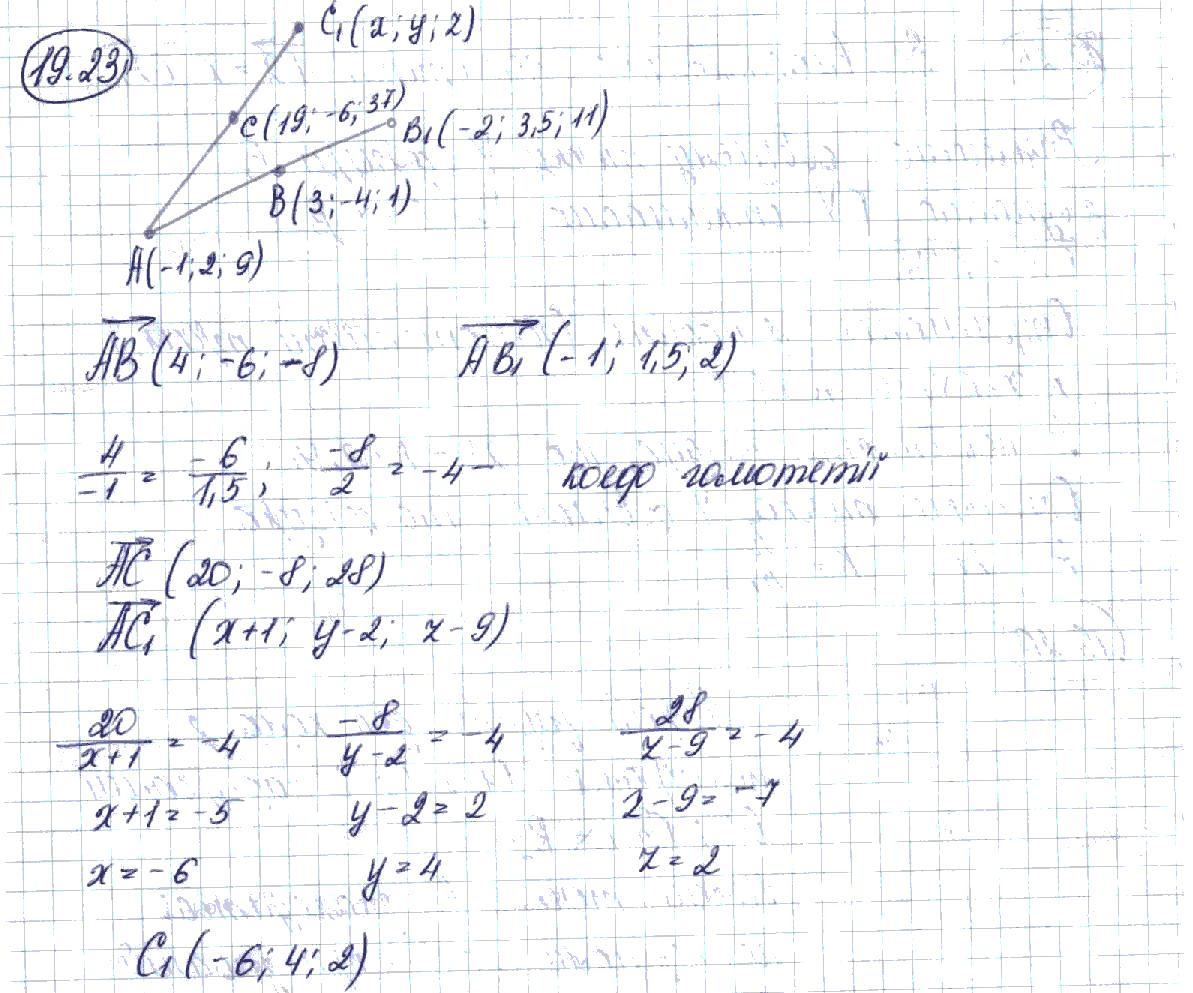 19.23
C₁(x; y; z)
C(19; -6; 37)
B₁(-2; 3,5; 11)
B(3; -4; 1)
A(-1; 2; 9)
AB⃗ (4; -6; -8) AB₁⃗ (-1; 1,5; 2)
4/-1 = -6/1,5; -8/2 = -4 - коеф гомотетії
AC⃗ (20; -8; 28)
AC₁⃗ (x+1; y-2; z-9)
20/(x+1) = -4 -8/(y-2) = -4 28/(z-9) = -4
x+1 = -5 y-2 = 2 z-9 = -7
x = -6 y = 4 z = 2
C₁(-6; 4; 2)